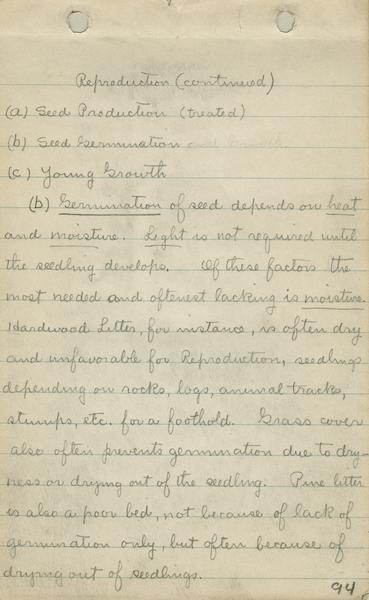 Reproduction (continued)
(a) Seed Production (treated)
(b) Seed Germination and Growth
(c) Young Growth
(b) Germination of seed depends on heat
and moisture. Light is not required until
the seedling develops. Of these factors the
most needed and oftenest lacking is moisture.
Hardwood Litter, for instance, is often dry
and unfavorable for Reproduction, seedlings
depending on rocks, logs, animal tracks,
stumps, etc. for a foothold. Grass cover
also often prevents germination due to dry-
ness or drying out of the seedling. Pine litter
is also a poor bed, not because of lack of
germination only, but often because of
drying out of seedlings.
94